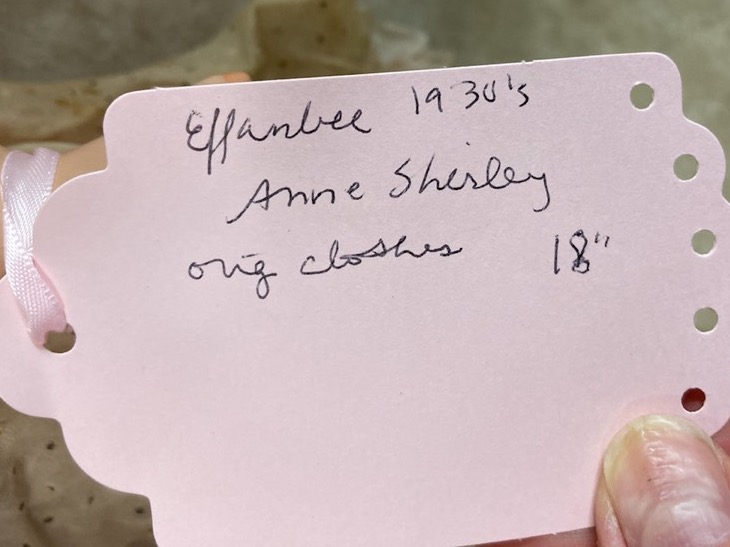 Effanbee 1930's
Anne Shirley
orig clothes 18"